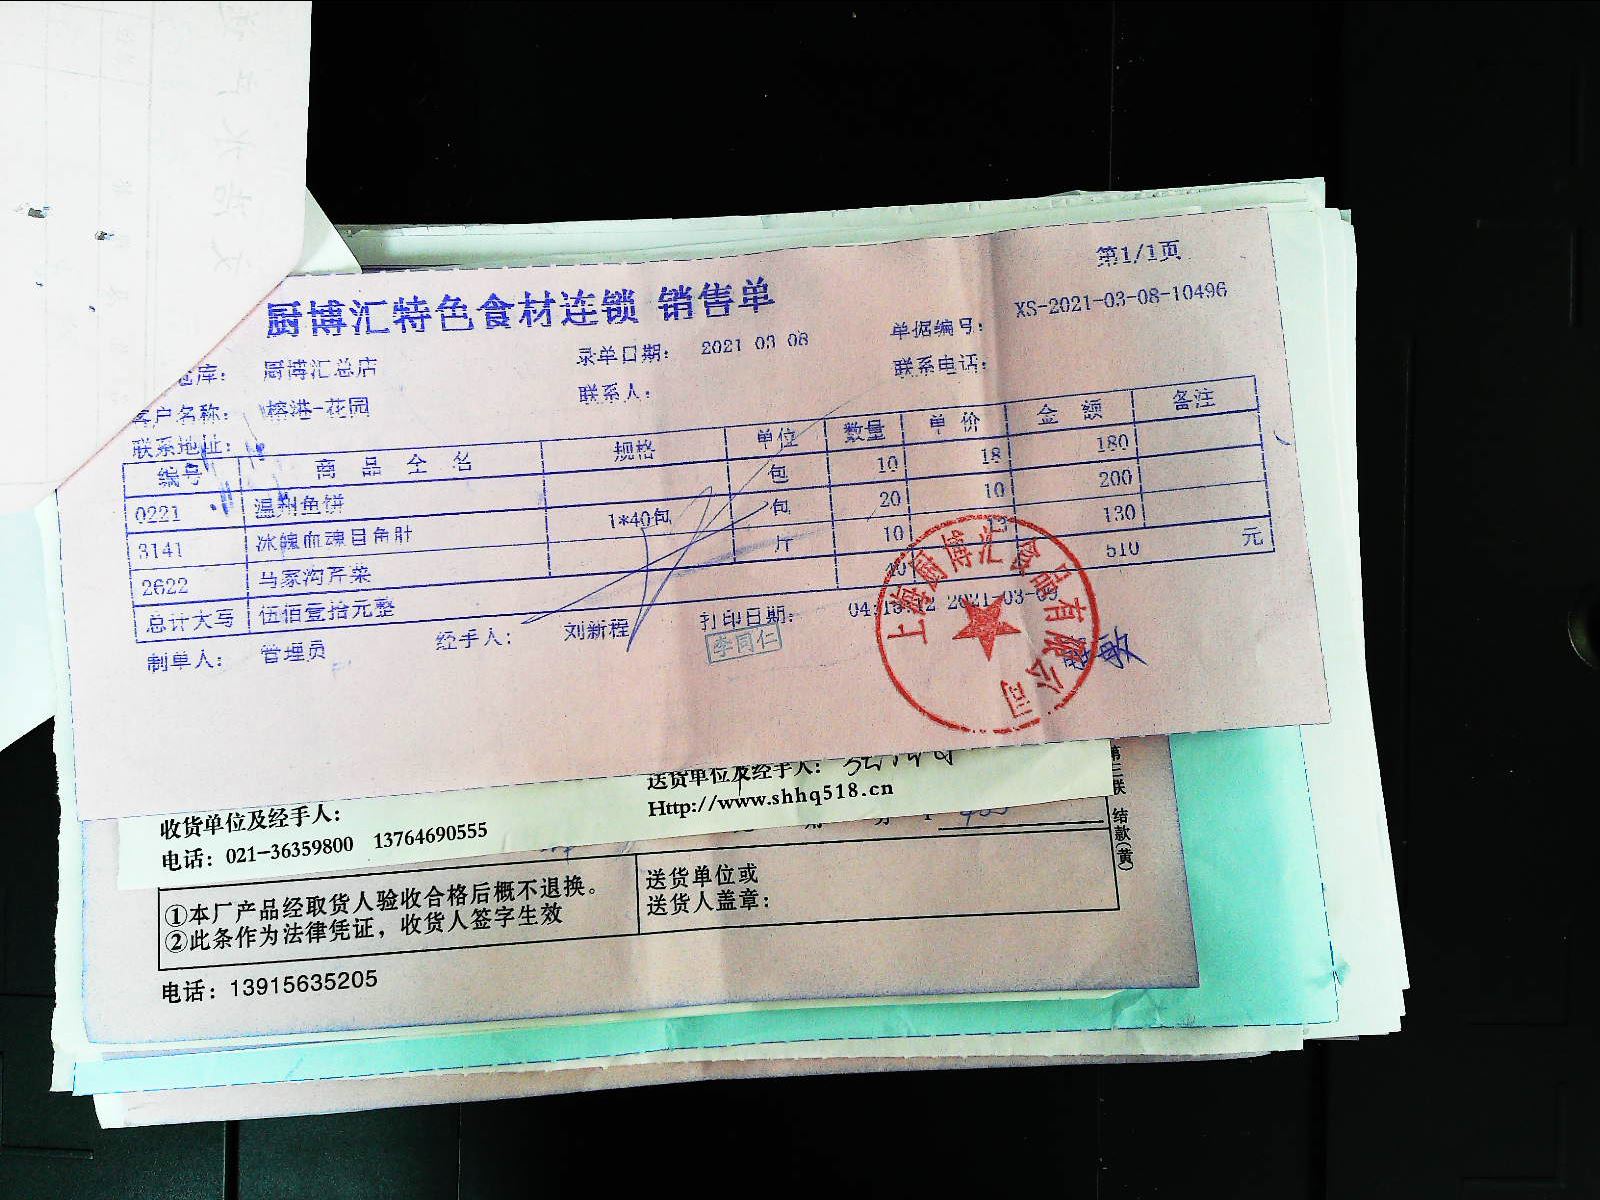 第1/1页
厨博汇特色食材连锁 销售单
仓库： 厨博汇总店 录单日期： 2021 03 08 单据编号： XS-2021-03-08-10496
客户名称： 榕港-花园 联系人： 联系电话：
联系地址：
编号 商品全名 规格 单位 数量 单价 金额 备注
0221 温州鱼饼 包 10 18 180
3141 1*40包 包 20 10 200
2622 马家沟芹菜 斤 10 13 130
总计大写 伍佰壹拾元整 40 510 元
制单人： 管理员 经手人： 刘新程 打印日期： 2021-03-09
李同仁
上海厨博汇食品有限公司
收货单位及经手人： 送货单位及经手人：
电话：021-36359800 13764690555 Http://www.shhq518.cn
第三联 结款(黄)
①本厂产品经取货人验收合格后概不退换。
②此条作为法律凭证，收货人签字生效
送货单位或
送货人盖章：
电话：13915635205